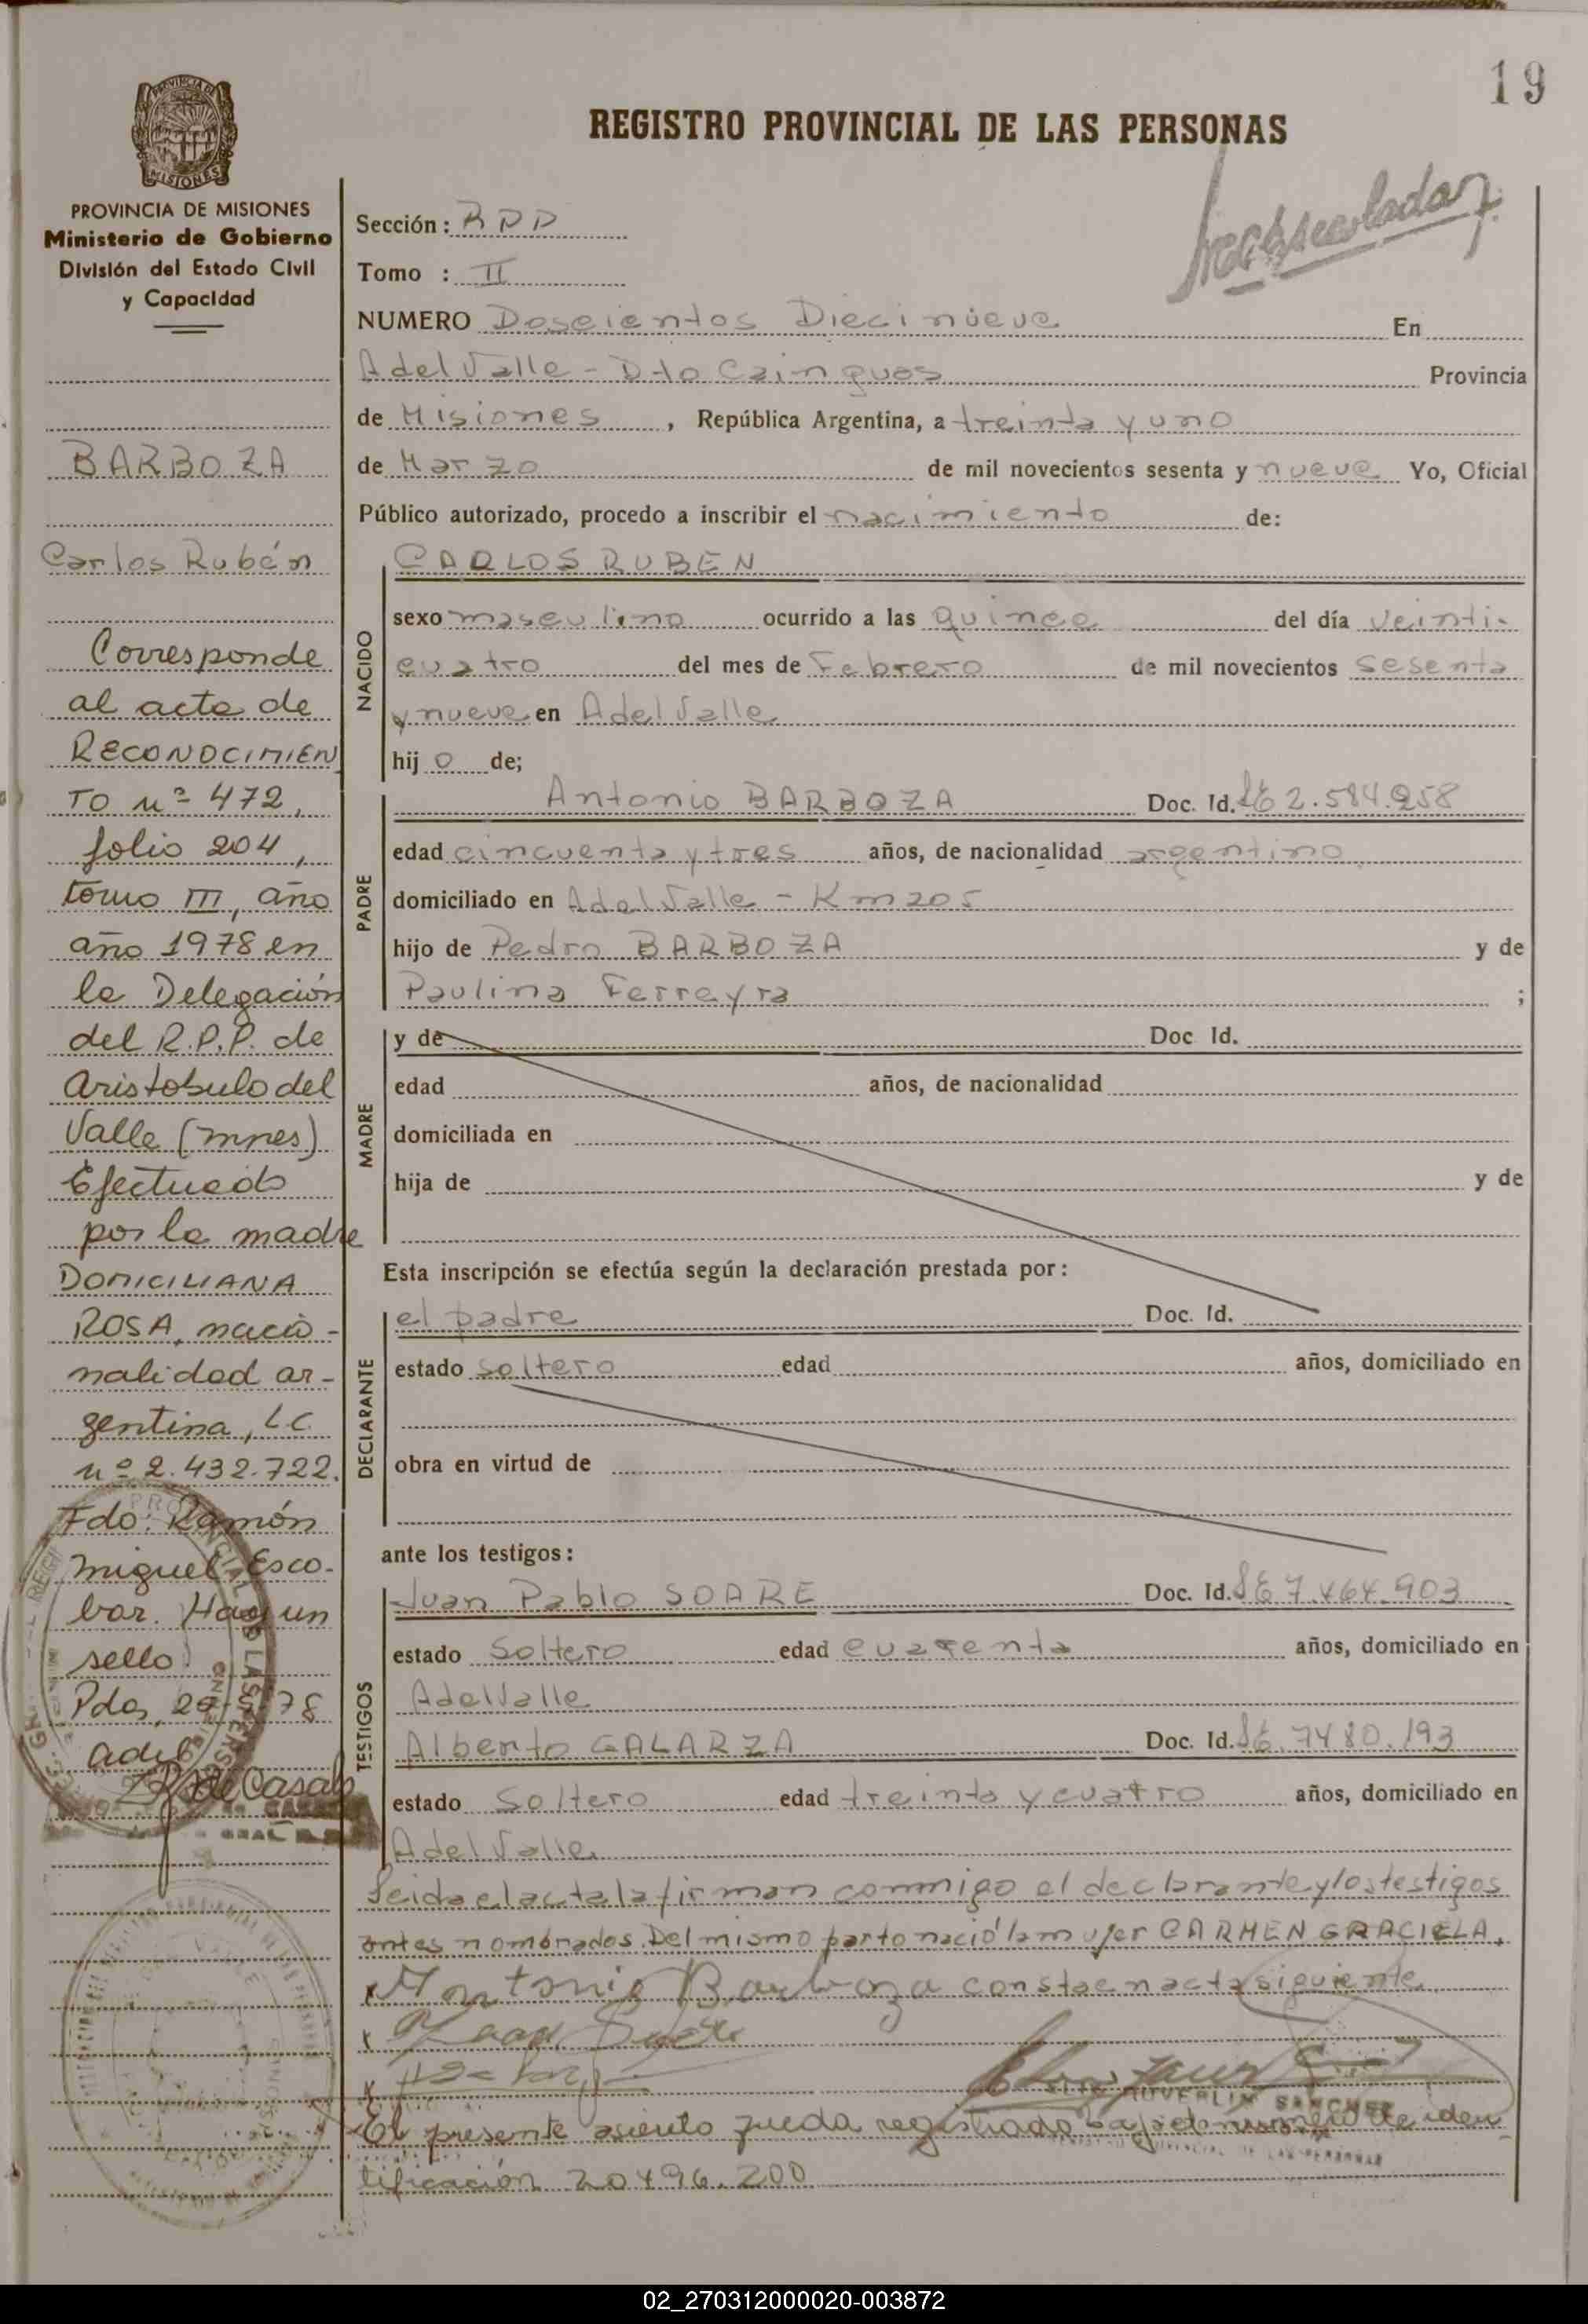 19
REGISTRO PROVINCIAL DE LAS PERSONAS
PROVINCIA DE MISIONES
Ministerio de Gobierno
División del Estado Civil
y Capacidad
BARBOZA
Carlos Rubén
Corresponde
al acta de
RECONOCIMIEN
TO nº 472,
folio 204,
tomo III, año
año 1978 en
la Delegación
del R.P.P. de
Aristobulo del
Valle (mnes)
Efectuado
por la madre
DOMICILIANA
ROSA, nacio-
nalidad ar-
gentina, L.C.
nº 2.432.722.
Fdo: Ramón
Miguel Esco-
bar. Hay un
sello
Pdas, 78
de Casals
Sección: RPP
Tomo : II
NUMERO Doscientos Diecinueve En
A del Valle - Dto Cainguas Provincia
de Misiones, República Argentina, a treinta y uno
de Marzo de mil novecientos sesenta y nueve Yo, Oficial
Público autorizado, procedo a inscribir el nacimiento de:
NACIDO
CARLOS RUBEN
sexo masculino ocurrido a las quince del día veinti-
cuatro del mes de Febrero de mil novecientos sesenta
y nueve en A del Valle
hijo de;
PADRE
Antonio BARBOZA Doc. Id. LE 2.584.258
edad cincuenta y tres años, de nacionalidad argentino
domiciliado en A del Valle - Km 205
hijo de Pedro BARBOZA y de
Paulina Ferreyra ;
MADRE
y de Doc Id.
edad años, de nacionalidad
domiciliada en
hija de y de
Esta inscripción se efectúa según la declaración prestada por:
DECLARANTE
el padre Doc. Id.
estado soltero edad años, domiciliado en
obra en virtud de
ante los testigos:
TESTIGOS
Juan Pablo SOARE Doc. Id. LE 7.464.903
estado Soltero edad cuarenta años, domiciliado en
A del Valle
Alberto GALARZA Doc. Id. LE. 7480.193
estado Soltero edad treinta y cuatro años, domiciliado en
A del Valle
Leida el acta la firman conmigo el declarante y los testigos
antes nombrados. Del mismo parto nació la mujer CARMEN GRACIELA,
Antonio Barboza consta en acta siguiente
SANCHEZ
El presente asiento queda registrado bajo el número de iden
tificación 20496.200
02_270312000020-003872